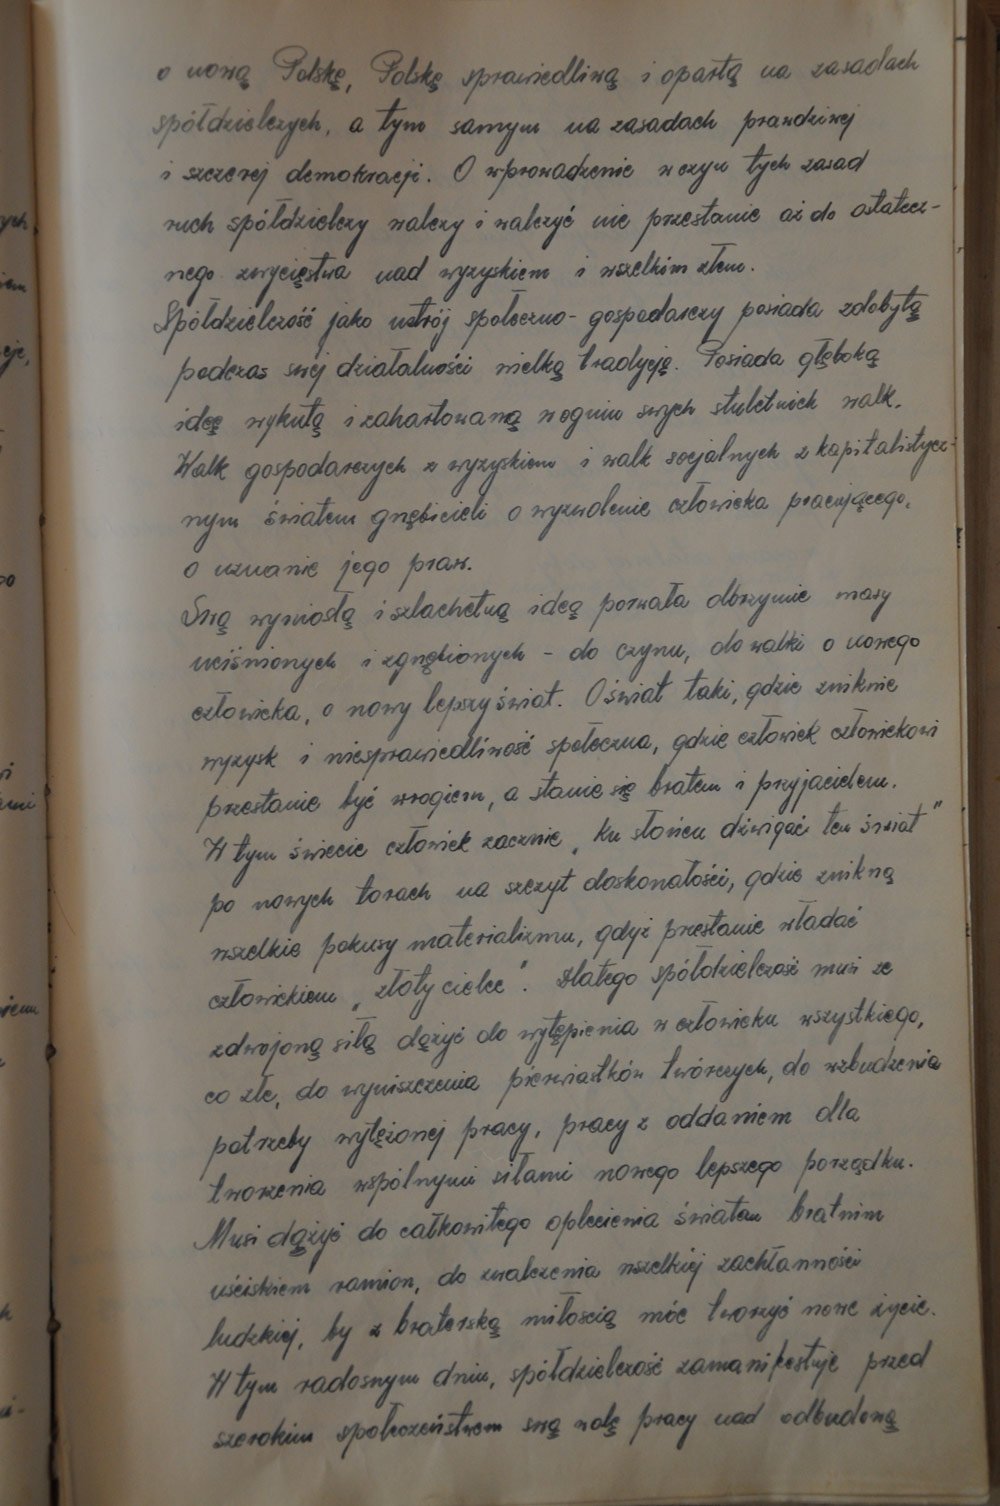 o nową Polskę, Polskę sprawiedliwą i opartą na zasadach
spółdzielczych, a tym samym na zasadach prawdziwej
i szczerej demokracji. O wprowadzenie w czyn tych zasad
ruch spółdzielczy walczy i walczyć nie przestanie aż do ostatecz-
nego zwycięstwa nad wyzyskiem i wszelkim złem.
Spółdzielczość jako ustrój społeczno-gospodarczy posiada zdobytą
podczas swej działalności wielką tradycję. Posiada głęboką
ideę wykutą i zahartowaną w ogniu swych stuletnich walk.
Walk gospodarczych z wyzyskiem i walk socjalnych z kapitalistycz-
nym światem gnębicieli o wyzwolenie człowieka pracującego,
o uznanie jego praw.
Swą wyniosłą i szlachetną ideą porwała olbrzymie masy
uciśnionych i zgnębionych - do czynu, do walki o nowego
człowieka, o nowy lepszy świat. O świat taki, gdzie zniknie
wyzysk i niesprawiedliwość społeczna, gdzie człowiek człowiekowi
przestanie być wrogiem, a stanie się bratem i przyjacielem.
W tym świecie człowiek zacznie „ku słońcu dźwigać ten świat"
po nowych torach na szczyt doskonałości, gdzie znikną
wszelkie pokusy materializmu, gdyż przestanie władać
człowiekiem „złoty cielec". Dlatego spółdzielczość musi ze
zdwojoną siłą dążyć do wytępienia w człowieku wszystkiego,
co złe, do wyniszczenia pierwiastków twórczych, do wzbudzenia
potrzeby wytężonej pracy, pracy z oddaniem dla
tworzenia wspólnymi siłami nowego lepszego porządku.
Musi dążyć do całkowitego oplecienia świata bratnim
uściskiem ramion, do zwalczenia wszelkiej zachłanności
ludzkiej, by z braterską miłością móc tworzyć nowe życie.
W tym radosnym dniu, spółdzielczość zamanifestuje przed
szerokim społeczeństwem swą wolę pracy nad odbudową